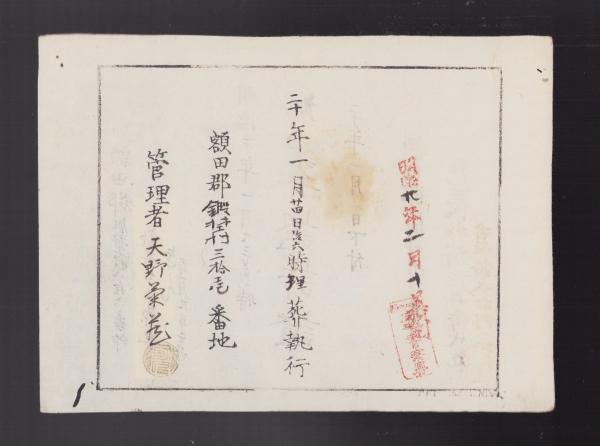 明治九年二月十
二十年一月廿四日後六時埋葬執行
額田郡村三拾壱番地
管理者天野菊蔵